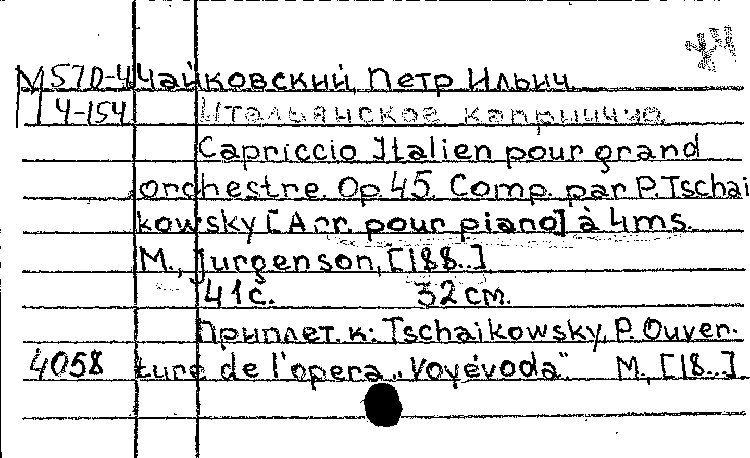 М 570-4 Чайковский, Петр Ильич
Ч-154 Итальянское каприччио
Capriccio Italien pour grand
orchestre. Op. 45. Comp. par P. Tschai
kowsky [Arr. pour piano] à 4 ms.
M., Jurgenson, [188..]
41 с. 32 см.
Приплет. к: Tschaikowsky, P. Ouver-
4058 ture de l'opera „Voyévoda" M., [18..]